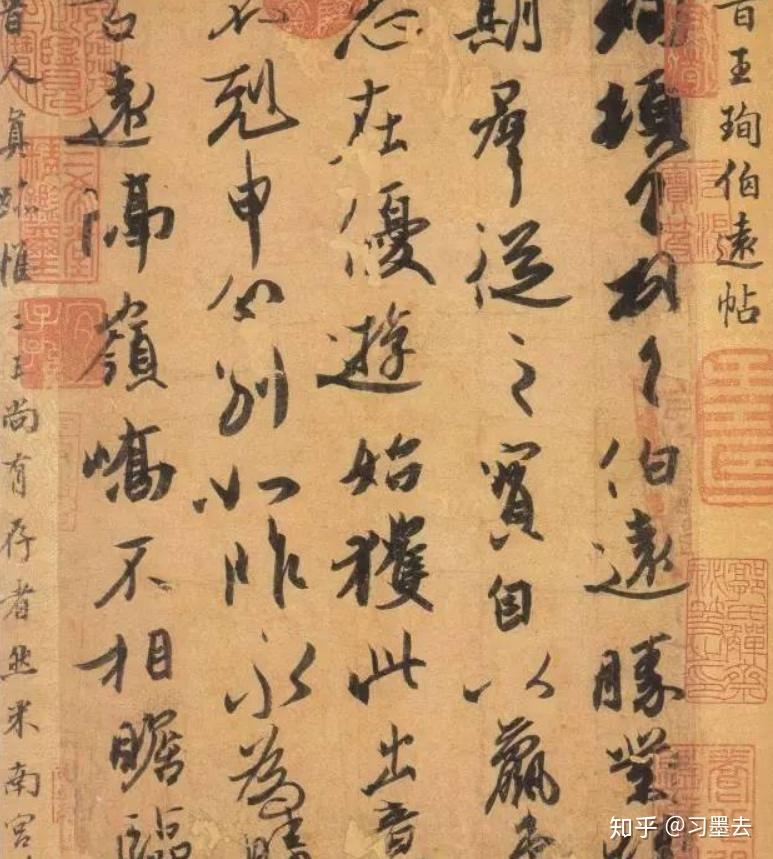 晉王珣伯遠帖
珣頓首頓首伯遠勝業情
期羣從之寶自以羸患
志在優遊始獲此出意
不剋申分別如昨永為疇
古遠隔嶺嶠不相瞻臨
晉人真跡惟二王尚有存者然米南宮
知乎 @习墨去